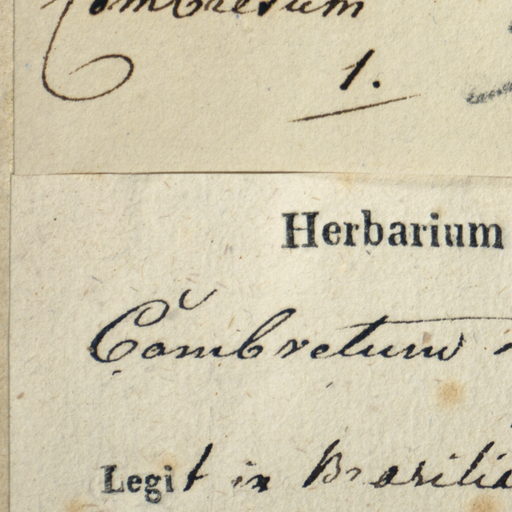 Combretum
1.
Herbarium
Combretum
Legit in Brasilia